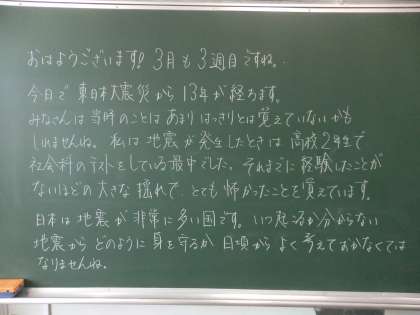 おはようございます! 3月も3週目ですね。
今日で東日本大震災から13年が経ちます。
みなさんは当時のことはあまりはっきりとは覚えていないかも
しれませんね。私は地震が発生したときは高校2年生で
社会科のテストをしている最中でした。それまでに経験したことが
ないほどの大きな揺れで、とても怖かったことを覚えています。
日本は地震が非常に多い国です。いつ起こるか分からない
地震からどのように身を守るか日頃からよく考えておかなくては
なりませんね。